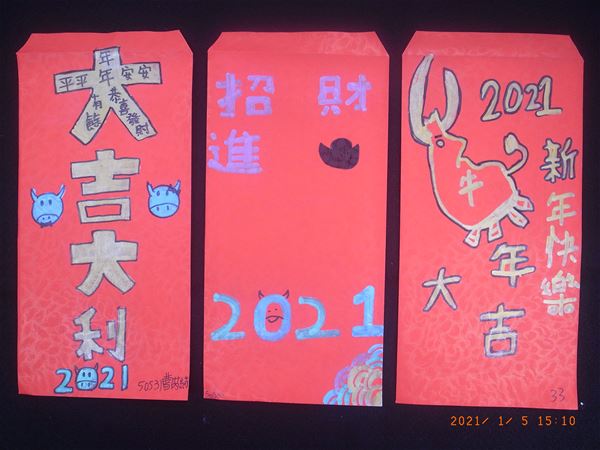 大吉大利
年年有餘
平平安安
恭喜發財
2021
招財
進
2021
2021
新年快樂
牛
年
大吉
33
2021/ 1/ 5 15:10